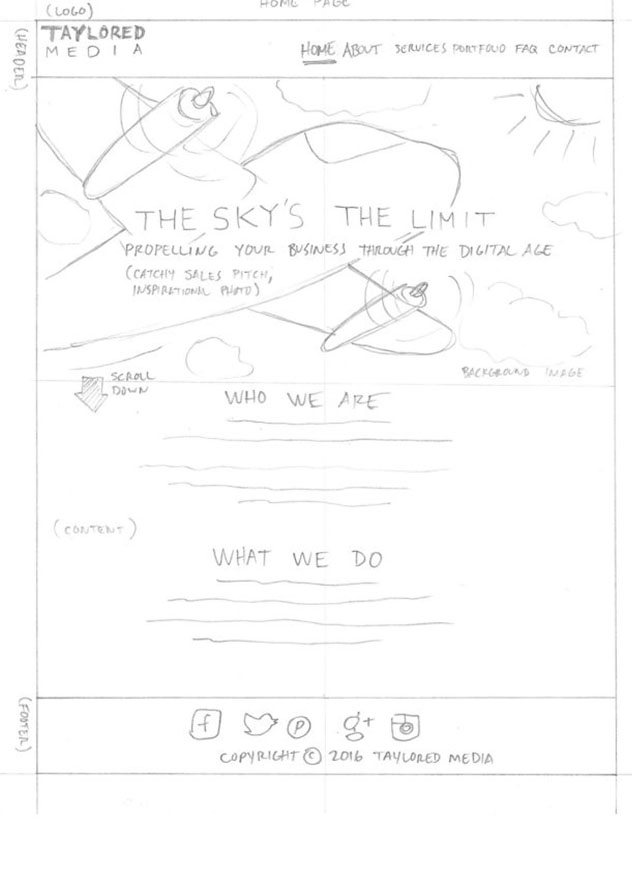 HOME PAGE
(LOGO)
(HEADER)
TAYLORED
MEDIA
HOME ABOUT SERVICES PORTFOLIO FAQ CONTACT
THE SKY'S THE LIMIT
PROPELLING YOUR BUSINESS THROUGH THE DIGITAL AGE
(CATCHY SALES PITCH,
INSPIRATIONAL PHOTO)
BACKGROUND IMAGE
SCROLL
DOWN
WHO WE ARE
(CONTENT)
WHAT WE DO
(FOOTER)
f P g+
COPYRIGHT © 2016 TAYLORED MEDIA